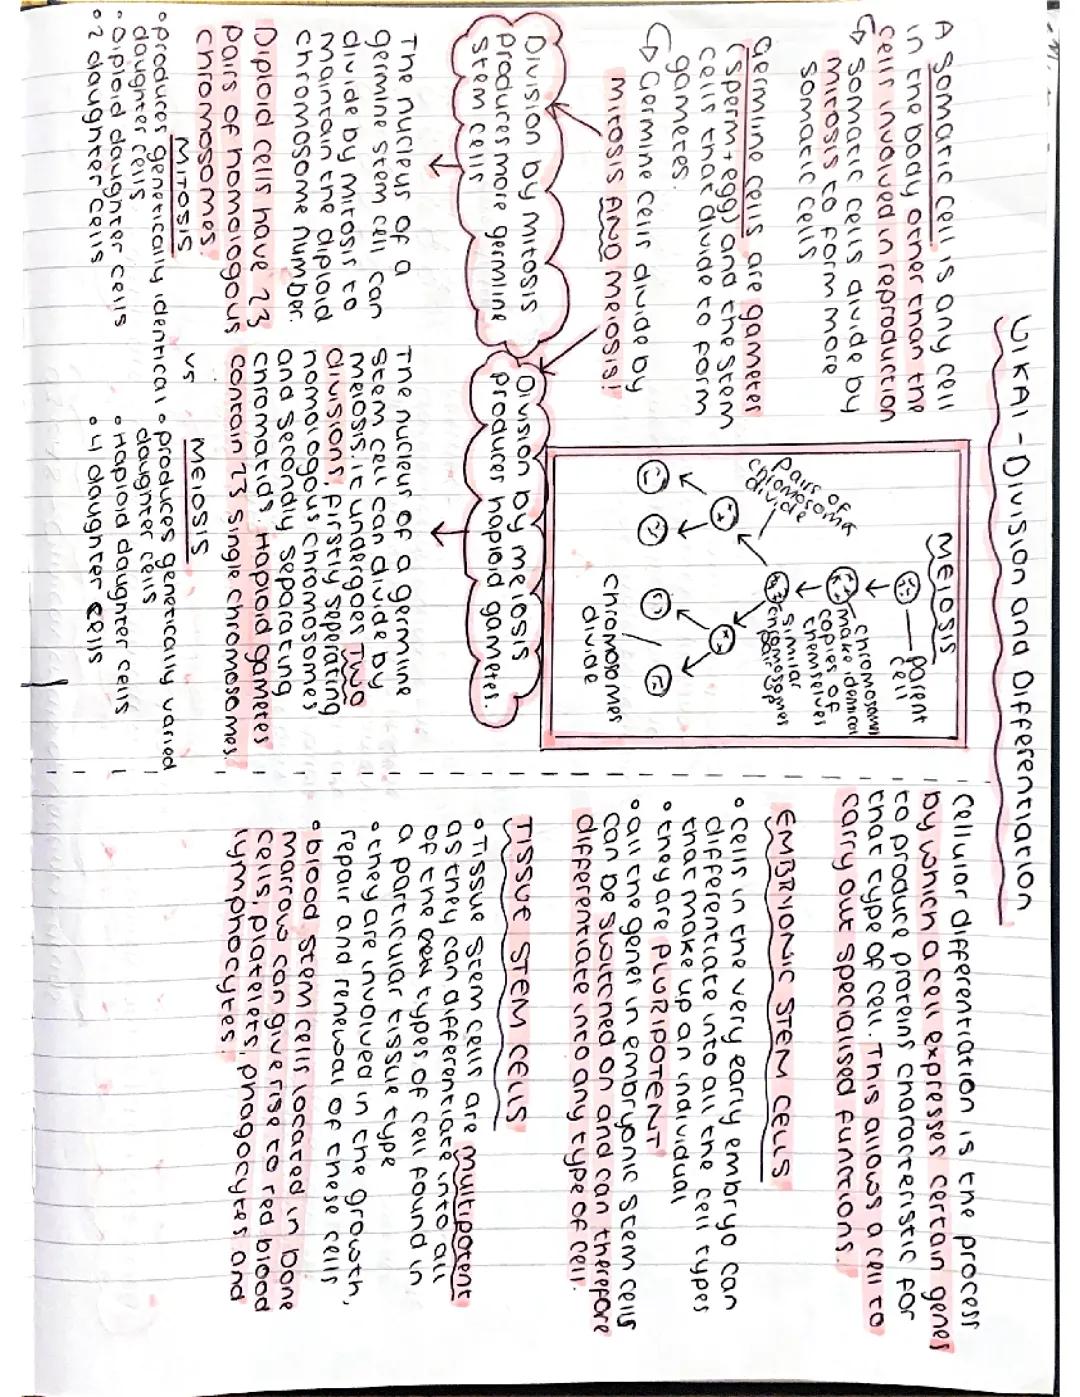 U1KA1 - Division and Differentiation
A somatic cell is any cell
in the body other than the
cells involved in reproduction
↳ somatic cells divide by
mitosis to form more
somatic cells
Germline cells are gametes
(sperm + egg) and the stem
cells that divide to form
gametes.
↳ Germine cells divide by
mitosis AND meiosis!
Division by mitosis
produces more germine
stem cells
The nucleus of a
germine stem cell can
divide by mitosis to
maintain the diploid
chromosome number.
Diploid cells have 23
pairs of homologous
chromosomes.
MITOSIS
• produces genetically identical
daughter cells
• Diploid daughter cells
• 2 daughter cells
vs
MEIOSIS
parent
cell
chromosomes
make identical
copies of
themselves
similar
chromosomes
pair
pairs of
chromosome
divide
chromosomes
divide
Division by meiosis
produces haploid gametes.
The nucleus of a germine
stem cell can divide by
meiosis. it undergoes TWO
divisions, firstly seperating
homologous chromosomes
and secondly separating
chromatids. Haploid gametes
contain 23 single chromosomes.
MEIOSIS
• produces genetically varied
daughter cells
• Haploid daughter cells
• 4 daughter cells
Cellular differentiation is the process
by which a cell expresses certain genes
to produce proteins characteristic for
that type of cell. This allows a cell to
carry out specialised functions.
EMBRYONIC STEM CELLS
• cells in the very early embryo can
differentiate into all the cell types
that make up an individual
• they are PLURIPOTENT
• all the genes in embryonic stem cells
can be switched on and can therefore
differentiate into any type of cell.
TISSUE STEM CELLS
• Tissue stem cells are multipotent
as they can differentiate into all
of the types of cell found in
a particular tissue type
• they are involved in the growth,
repair and renewal of these cells
• blood stem cells located in bone
marrow can give rise to red blood
cells, platelets, phagocytes and
lymphocytes.